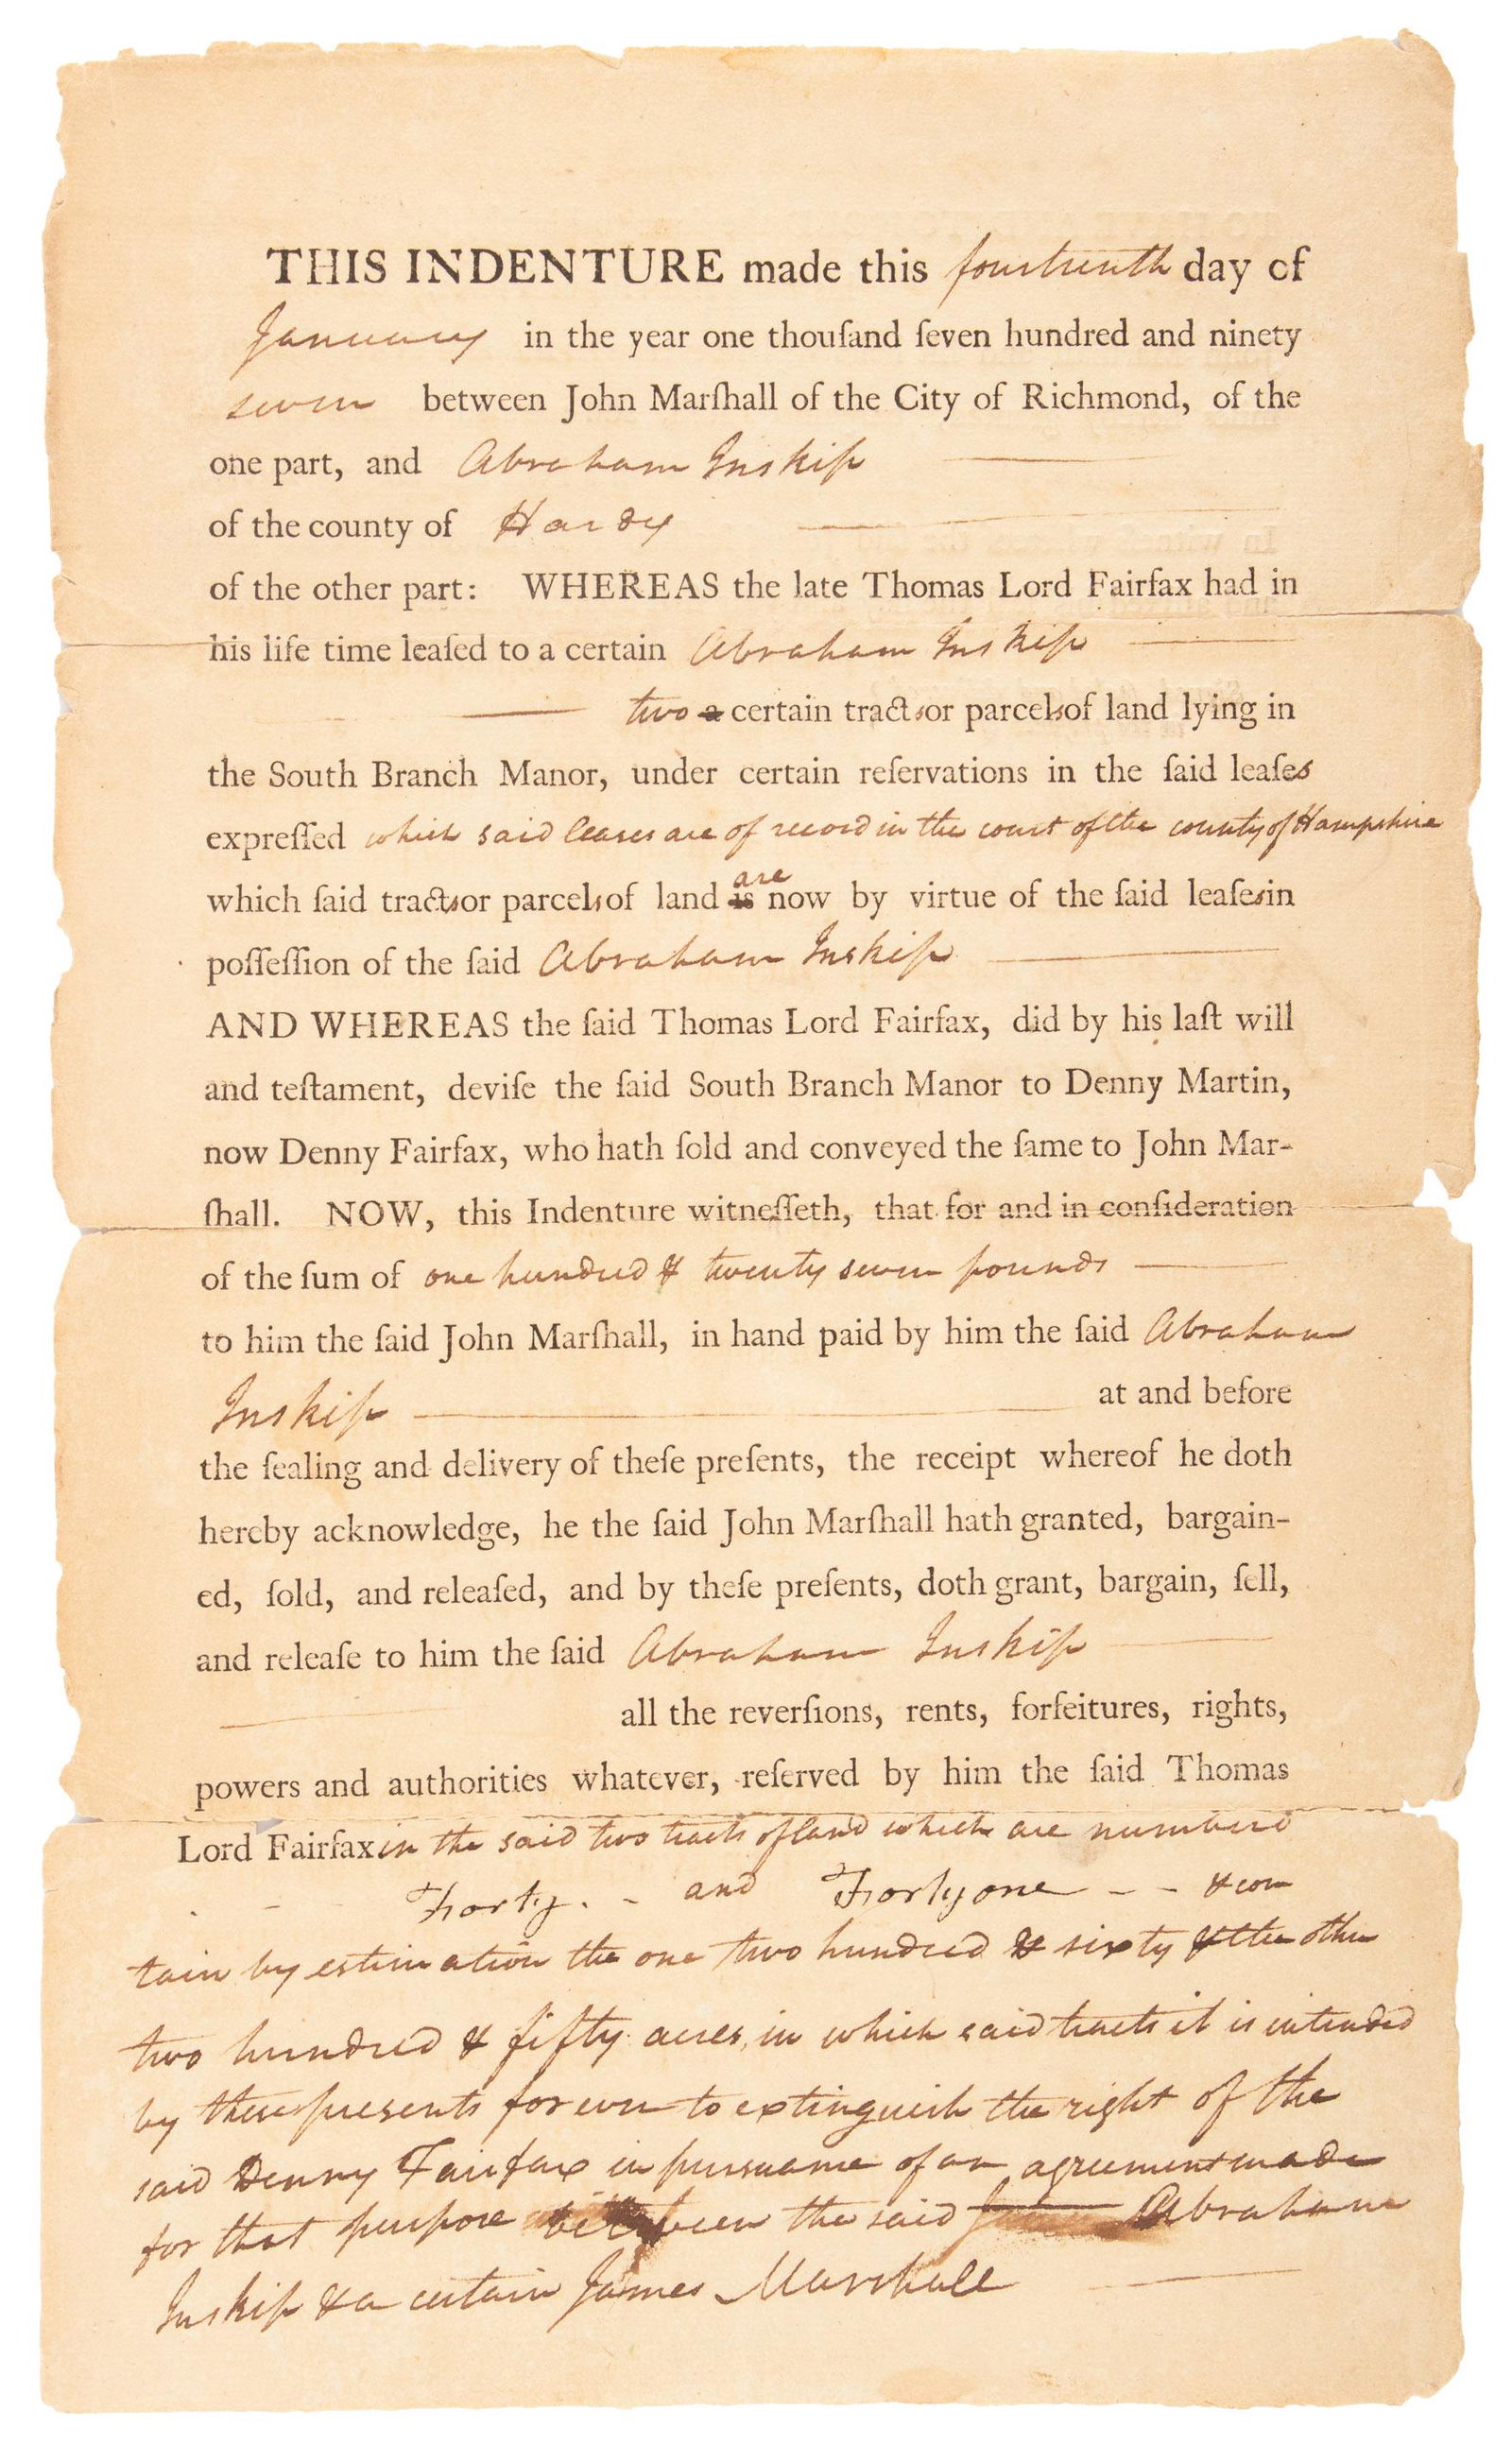 THIS INDENTURE made this fourteenth day of
January in the year one thouſand ſeven hundred and ninety
seven between John Marſhall of the City of Richmond, of the
one part, and Abraham Inskip
of the county of Hardy
of the other part: WHEREAS the late Thomas Lord Fairfax had in
his life time leaſed to a certain Abraham Inskip
two a certain tracts or parcels of land lying in
the South Branch Manor, under certain reſervations in the ſaid leaſes
expreſſed which said leases are of record in the court of the county of Hampshire
which ſaid tracts or parcels of land is are now by virtue of the ſaid leaſes in
poſſeſſion of the ſaid Abraham Inskip
AND WHEREAS the ſaid Thomas Lord Fairfax, did by his laſt will
and teſtament, deviſe the ſaid South Branch Manor to Denny Martin,
now Denny Fairfax, who hath ſold and conveyed the ſame to John Mar-
ſhall. NOW, this Indenture witneſſeth, that for and in conſideration
of the ſum of one hundred & twenty seven pounds
to him the ſaid John Marſhall, in hand paid by him the ſaid Abraham
Inskip at and before
the ſealing and delivery of theſe preſents, the receipt whereof he doth
hereby acknowledge, he the ſaid John Marſhall hath granted, bargain-
ed, ſold, and releaſed, and by theſe preſents, doth grant, bargain, ſell,
and releaſe to him the ſaid Abraham Inskip
all the reverſions, rents, forfeitures, rights,
powers and authorities whatever, reſerved by him the ſaid Thomas
Lord Fairfax in the said two tracts of land which are numberd
Forty. - and Forty one - - & con
tain by estimation the one two hundred & sixty & the other
two hundred & fifty acres, in which said tracts it is intended
by these presents forever to extinguish the right of the
said Denny Fairfax in pursuance of an agreement made
for that purpose between the said Abraham
Inskip & a certain James Marshall